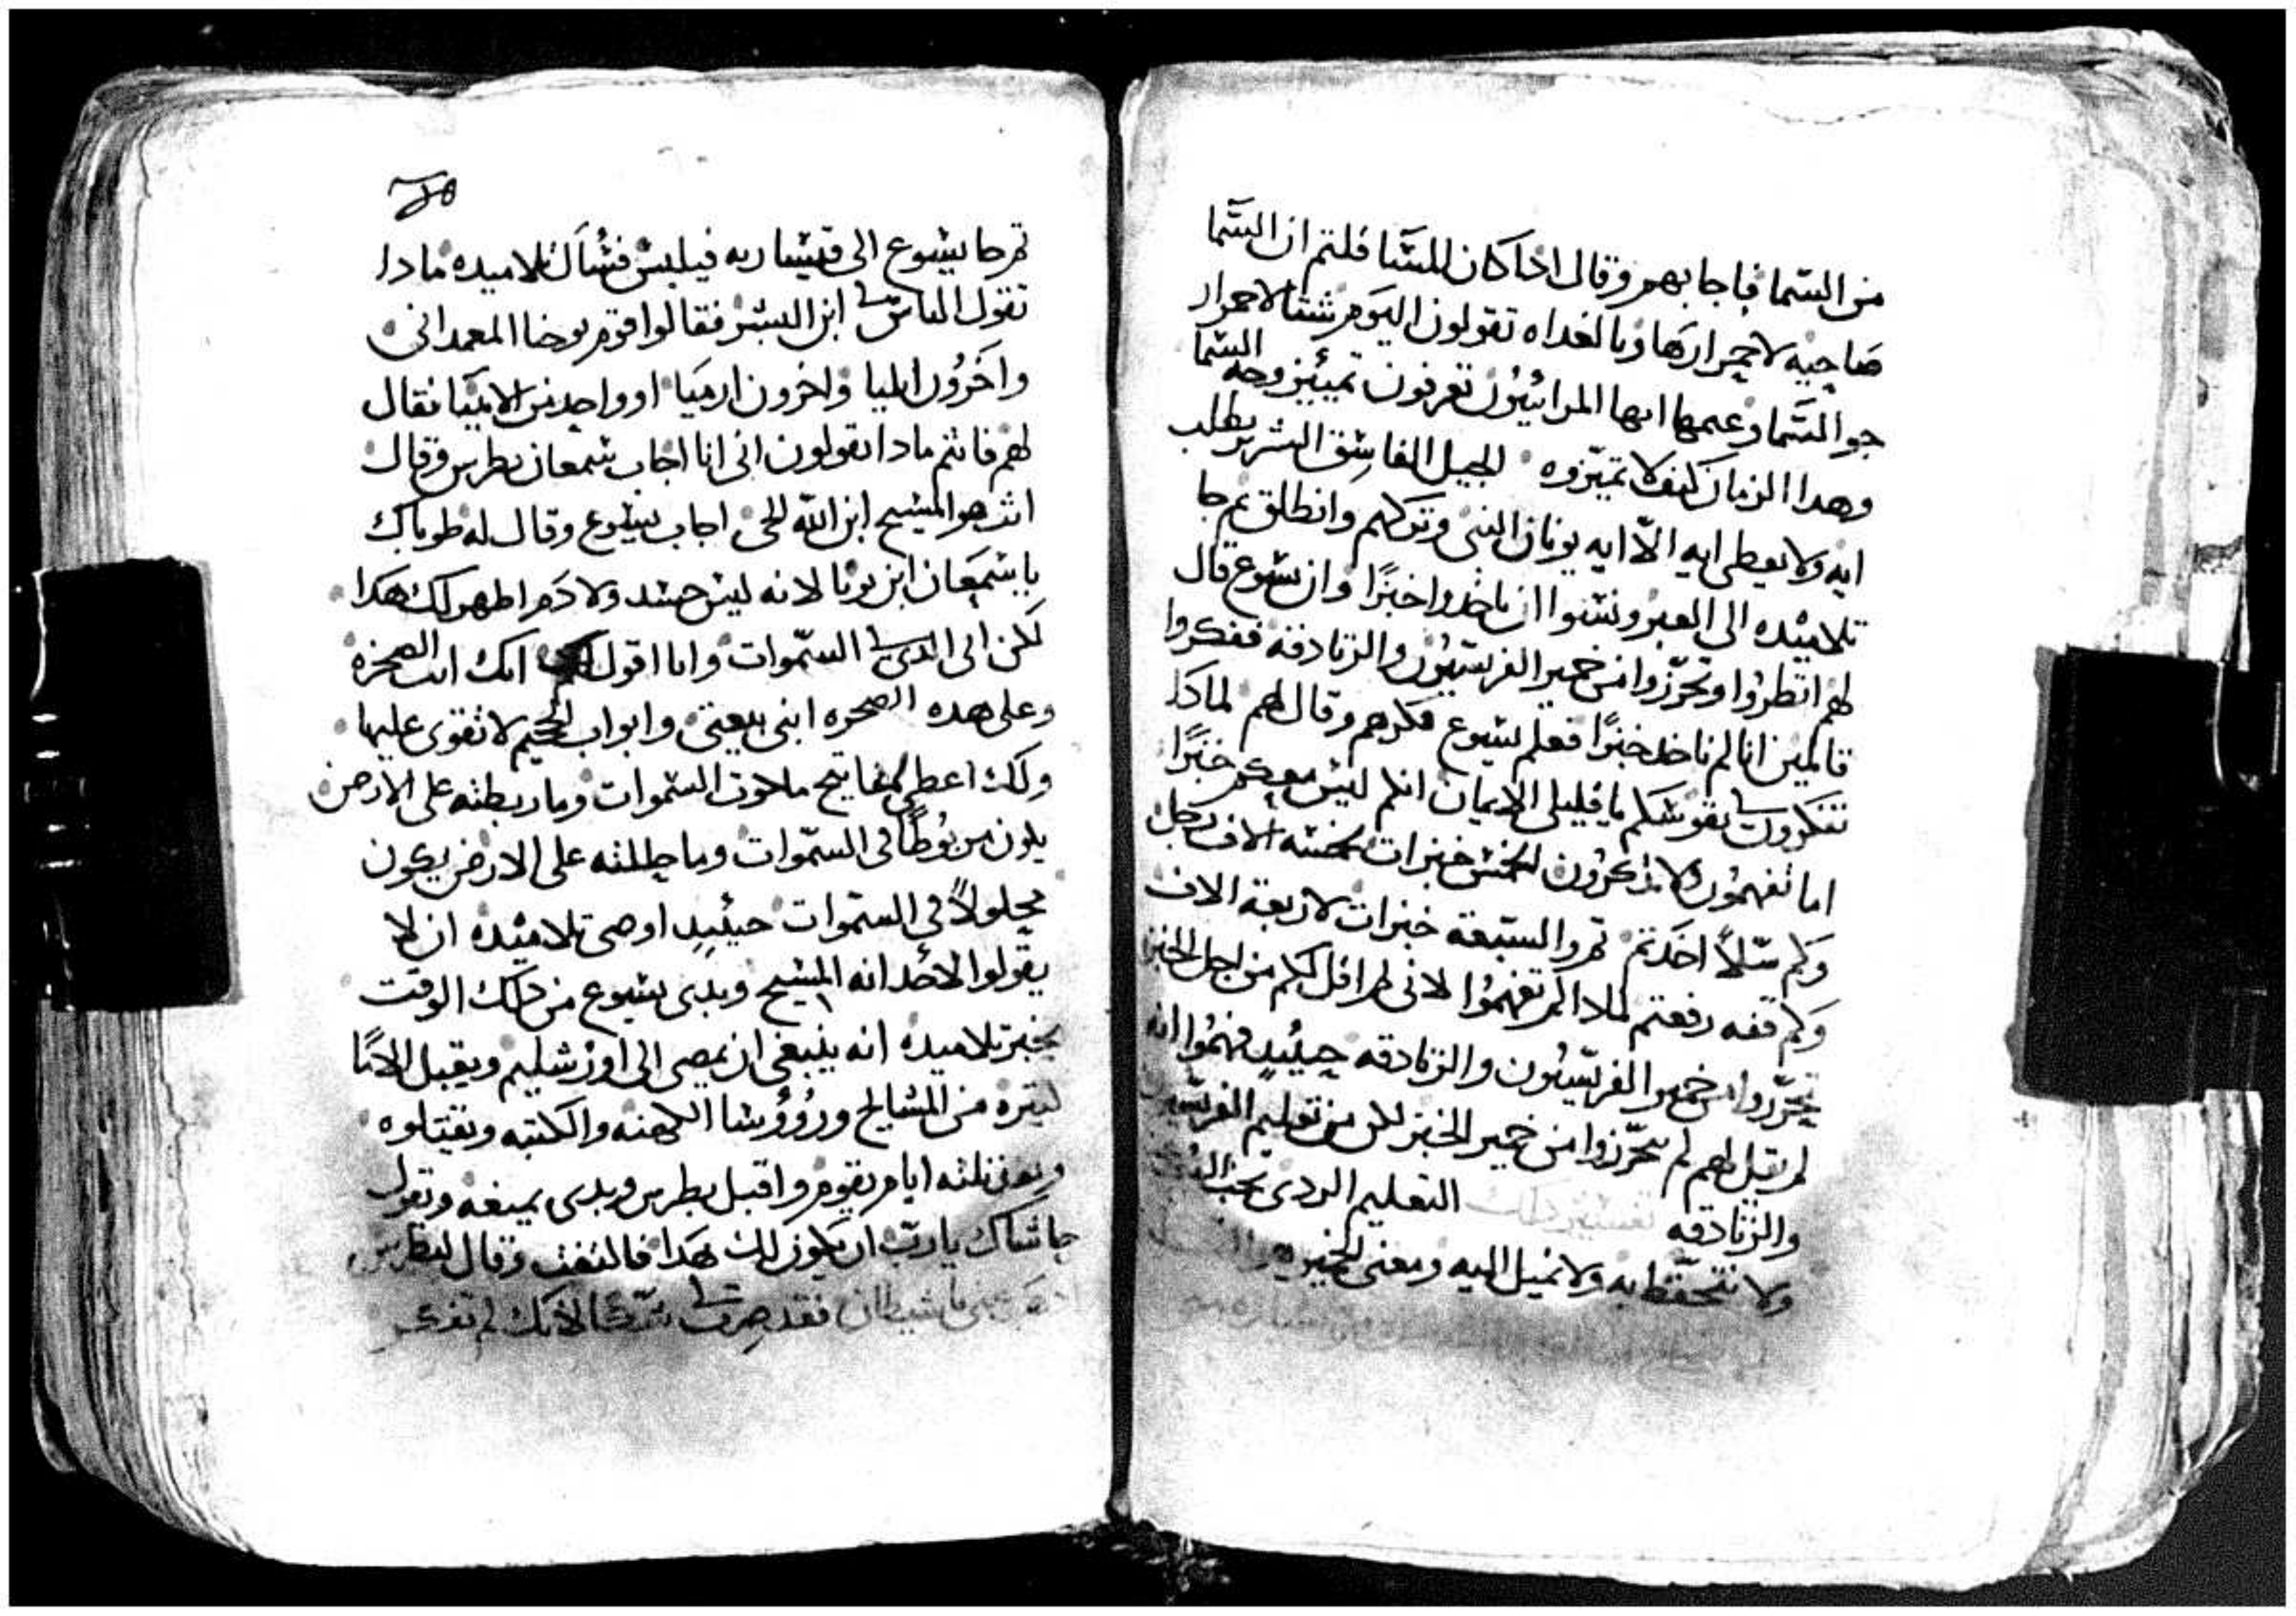 من السّما فاجابهم وقال اذا كان المسَا قلتم ان السّما
صاحيه لاحمرارها وبالغداه تقولون اليوم شتا لاحمرار
جو السّما وعمها ايها المرائيّون تعرفون تميّيز وجه السّما
وهدا الزمان كيف لا تميّزوه الجيل الفاسق الشرير يطلب
ايه ولا يعطى ايه الّا ايه يونان النبى وتركهم وانطلق ثم جا
تلاميذه الى العبر ونسوا ان ياخدوا خبزًا وان يسوع قال
لهم انظروا وتحرّزوا من خمير الفريسيّون والزنادقه ففكروا
قايلين انا لم ناخد خبزًا فعلم يسوع فكرهم وقال لهم لمادا
تفكرون فى نفوسكم يا قليلى الايمان انكم ليس معكم خبزًا
اما تفهمون ولا تذكرون الخمس خبزات لخمسه الاف رجل
وكم سّلاً اخدتم ثم والسّبعة خبزات لاربعة الاف
وكم قفه رفعتم لمادا لم تفهموا لانى لم اقل لكم من اجل الخبز
تحرّزوا من خمير الفريسيّون والزنادقه حينيدٍ فهموا انه
لم يقل لهم ان يتحرّزوا من خمير الخبز لكن من تعليم الفريّسيون
والزنادقه تفسير ذلك التعليم الردى يجب
ولا نتحفّظ به ولا نميل اليه ومعنى الخمير
ثم جا يسوع الى قيسّاريه فيلبس فسُأل تلاميده مادا
تقول الناس فى ابن البشر فقالوا قوم يوحنا المعمدانى
واخرُون ايليا واخرون ارميَا او واحد من الانبيَا فقال
لهم فانتم مادا تقولون انى انا اجاب سمعان بطرس وقال
انت هو المسيح ابن الله الحى اجاب يسوع وقال له طوباك
يا سمعَان ابن يونا لانه ليس جسد ولا دَم اظهر لك هَدا
لكن ابى الدى فى السّموات وانا اقول لك انك انت الصخره
وعلى هده الصخره ابنى بيعتى وابواب الجحيم لا تقوى عليها
ولك اعطى مفاتيح ملكوت السّموات وما ربطته على الارض
يكون مربُوطًا فى السّموات وما حللته على الارض يكون
محلولاً فى السّموات حينيدٍ اوصى تلاميده ان لا
يقولوا لاحد انه المسيح وبدى يسوع من دلك الوقت
يخبر تلاميده انه ينبغى ان يمضى الى اورشليم ويقبل الامًا
كتيره من المشايخ ورُؤُوسَا الكهنه والكتبه ويقتلوه
وبعد ثلثه ايام يقوم واقبل بطرس وبدى يمنعه ويقول
حاشاك يا ربّ ان يكون لك هَدا فالتفت وقال لبطرس
ادهَب عنى يا شيطان فقد صرت لى شكًا لانك لم تفكر